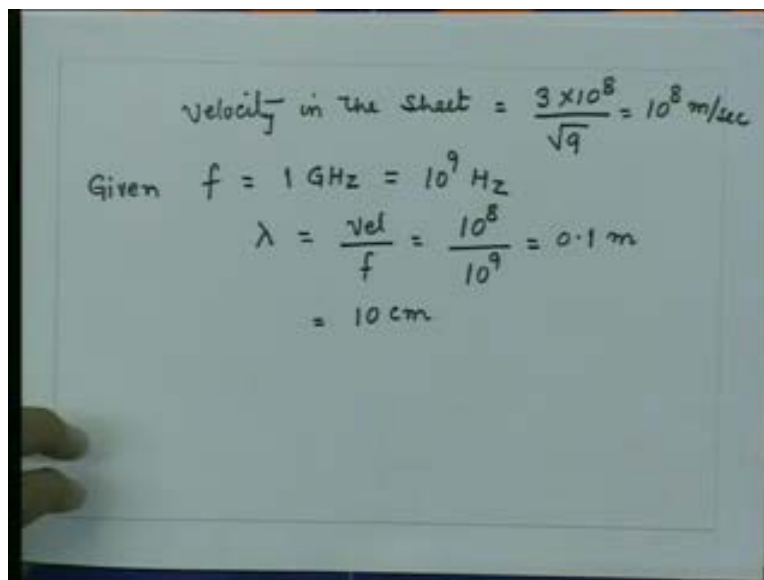 Velocity in the sheet = 3 x10^8 / √9 = 10^8 m/sec
Given f = 1 GHz = 10^9 Hz
λ = vel / f = 10^8 / 10^9 = 0.1 m
= 10 cm